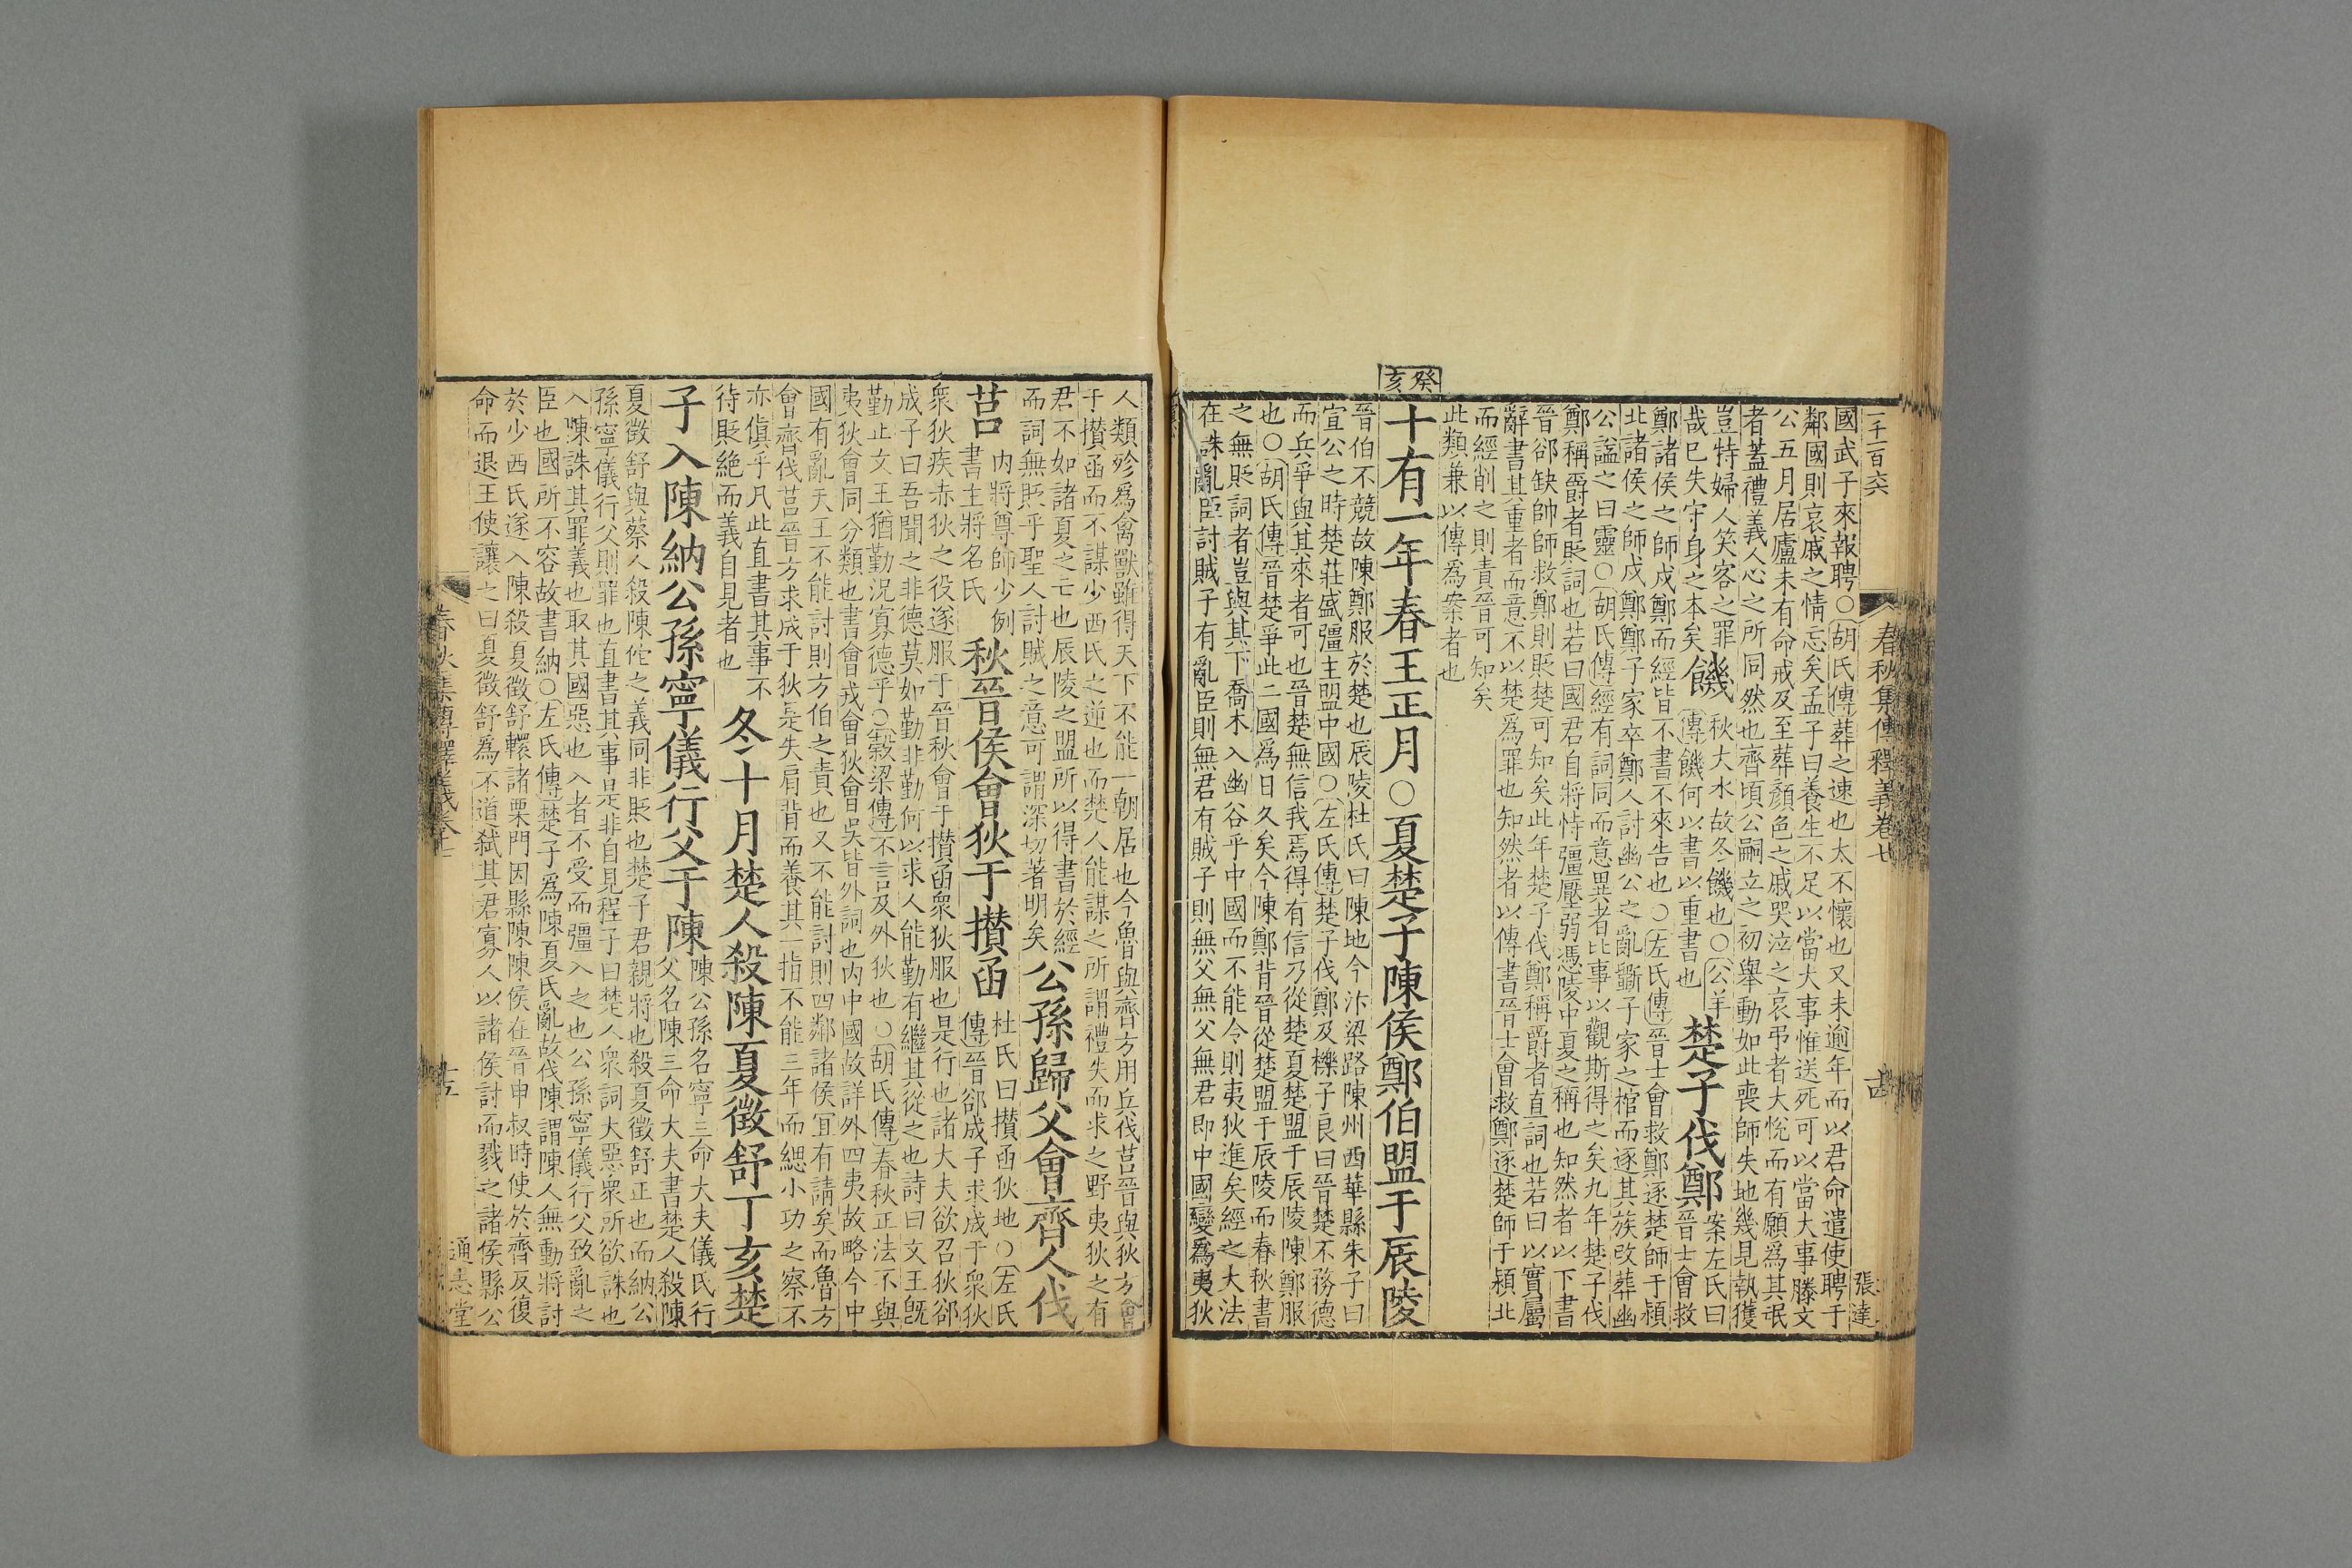 春秋集傳釋義卷七
十四
張達
國武子來報聘○胡氏傳葬之速也太不懷也又未逾年而以君命遣使聘于
鄰國則哀戚之情忘矣孟子曰養生不足以當大事惟送死可以當大事滕文
公五月居廬未有命戒及至葬顏色之戚哭泣之哀弔者大悅而有願爲其氓
者蓋禮義人心之所同然也齊頃公嗣立之初舉動如此喪師失地幾見執獲
豈特婦人笑客之罪
哉已失守身之本矣
饑
秋大水故冬饑也○公羊
傳饑何以書以重書也
楚子伐鄭
案左氏曰
晉士會救
鄭諸侯之師戍鄭而經皆不書不來告也○左氏傳晉士會救鄭逐楚師于潁
北諸侯之師戍鄭鄭子家卒鄭人討幽公之亂斲子家之棺而逐其族改葬幽
公諡之曰靈○胡氏傳經有詞同而意異者比事以觀斯得之矣九年楚子伐
鄭稱爵者貶詞也若曰國君自將恃彊壓弱憑陵中夏之稱也知然者以下書
晉郤缺帥師救鄭則貶楚可知矣此年楚子伐鄭稱爵者直詞也若曰以實屬
辭書其重者而意不以楚爲罪也知然者以傳書晉士會救鄭逐楚師于潁北
而經削之則責晉可知矣
此類兼以傳爲案者也
癸亥
十有一年春王正月○夏楚子陳侯鄭伯盟于辰陵
晉伯不競故陳鄭服於楚也辰陵杜氏曰陳地今汴梁路陳州西華縣朱子曰
宣公之時楚莊盛彊主盟中國○左氏傳楚子伐鄭及櫟子良曰晉楚不務德
而兵爭與其來者可也晉楚無信我焉得有信乃從楚夏楚盟于辰陵陳鄭服
也○胡氏傳晉楚爭此二國爲日久矣今陳鄭背晉從楚盟于辰陵而春秋書
之無貶詞者豈與其下喬木入幽谷乎中國而不能令則夷狄進矣經之大法
在誅亂臣討賊子有亂臣則無君有賊子則無父無父無君即中國變爲夷狄
人類殄爲禽獸雖得天下不能一朝居也今魯與齊方用兵伐莒晉與狄方會
于攢函而不謀少西氏之逆也而楚人能謀之所謂禮失而求之野夷狄之有
君不如諸夏之亡也辰陵之盟所以得書於經
而詞無貶乎聖人討賊之意可謂深切著明矣
公孫歸父會齊人伐
莒
内將尊師少例
書主將名氏
秋晉侯會狄于攢函
杜氏曰攢函狄地○左氏
傳晉郤成子求成于衆狄
衆狄疾赤狄之役遂服于晉秋會于攢函衆狄服也是行也諸大夫欲召狄郤
成子曰吾聞之非德莫如勤非勤何以求人能勤有繼其從之也詩曰文王既
勤止文王猶勤況寡德乎○穀梁傳不言及外狄也○胡氏傳春秋正法不與
夷狄會同分類也書會戎會狄會吳皆外詞也内中國故詳外四夷故略今中
國有亂天王不能討則方伯之責也又不能討則四鄰諸侯宜有請矣而魯方
會齊伐莒晉方求成于狄是失肩背而養其一指不能三年而緦小功之察不
亦傎乎凡此直書其事不
待貶絶而義自見者也
冬十月楚人殺陳夏徵舒丁亥楚
子入陳納公孫寧儀行父于陳
陳公孫名寧三命大夫儀氏行
父名陳三命大夫書楚人殺陳
夏徵舒與蔡人殺陳佗之義同非貶也楚子君親將也殺夏徵舒正也而納公
孫寧儀行父則罪也直書其事是非自見程子曰楚人衆詞大惡衆所欲誅也
入陳誅其罪義也取其國惡也入者不受而彊入之也公孫寧儀行父致亂之
臣也國所不容故書納○左氏傳楚子爲陳夏氏亂故伐陳謂陳人無動將討
於少西氏遂入陳殺夏徵舒轘諸栗門因縣陳陳侯在晉申叔時使於齊反復
命而退王使讓之曰夏徵舒爲不道弑其君寡人以諸侯討而戮之諸侯縣公
春秋集傳釋義卷七
十五
通志堂